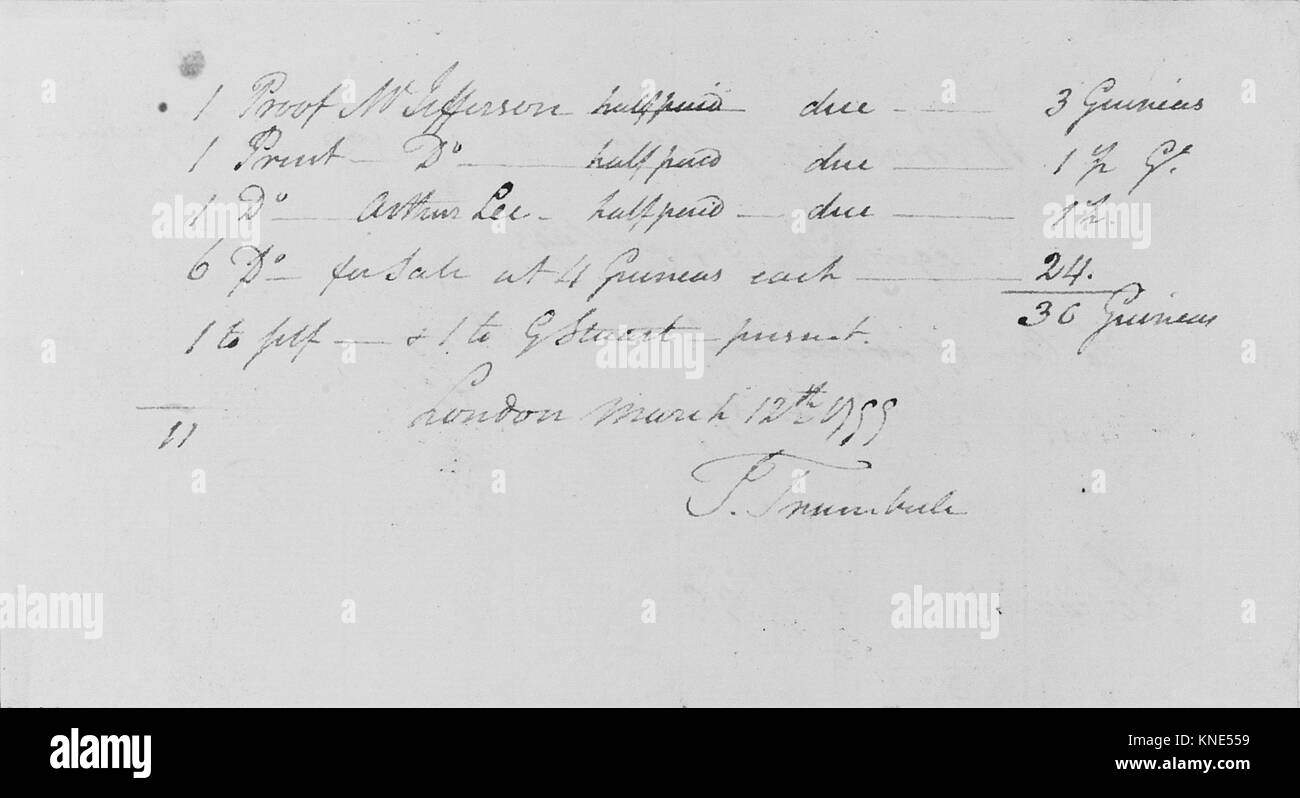 1 Proof Mr Jefferson half paid due — 3 Guineas
1 Print — Do — half paid due — 1 1/2 Gs.
1 Do — Arthur Lee — half paid — due — 1 1/2.
6 Do — for Sale at 4 Guineas each — 24.
30 Guineas
1 to self — & 1 to G Stuart —
11
London March 12th 1799
J. Trumbull
alamy
alamy
Image ID: KNE559
www.alamy.com